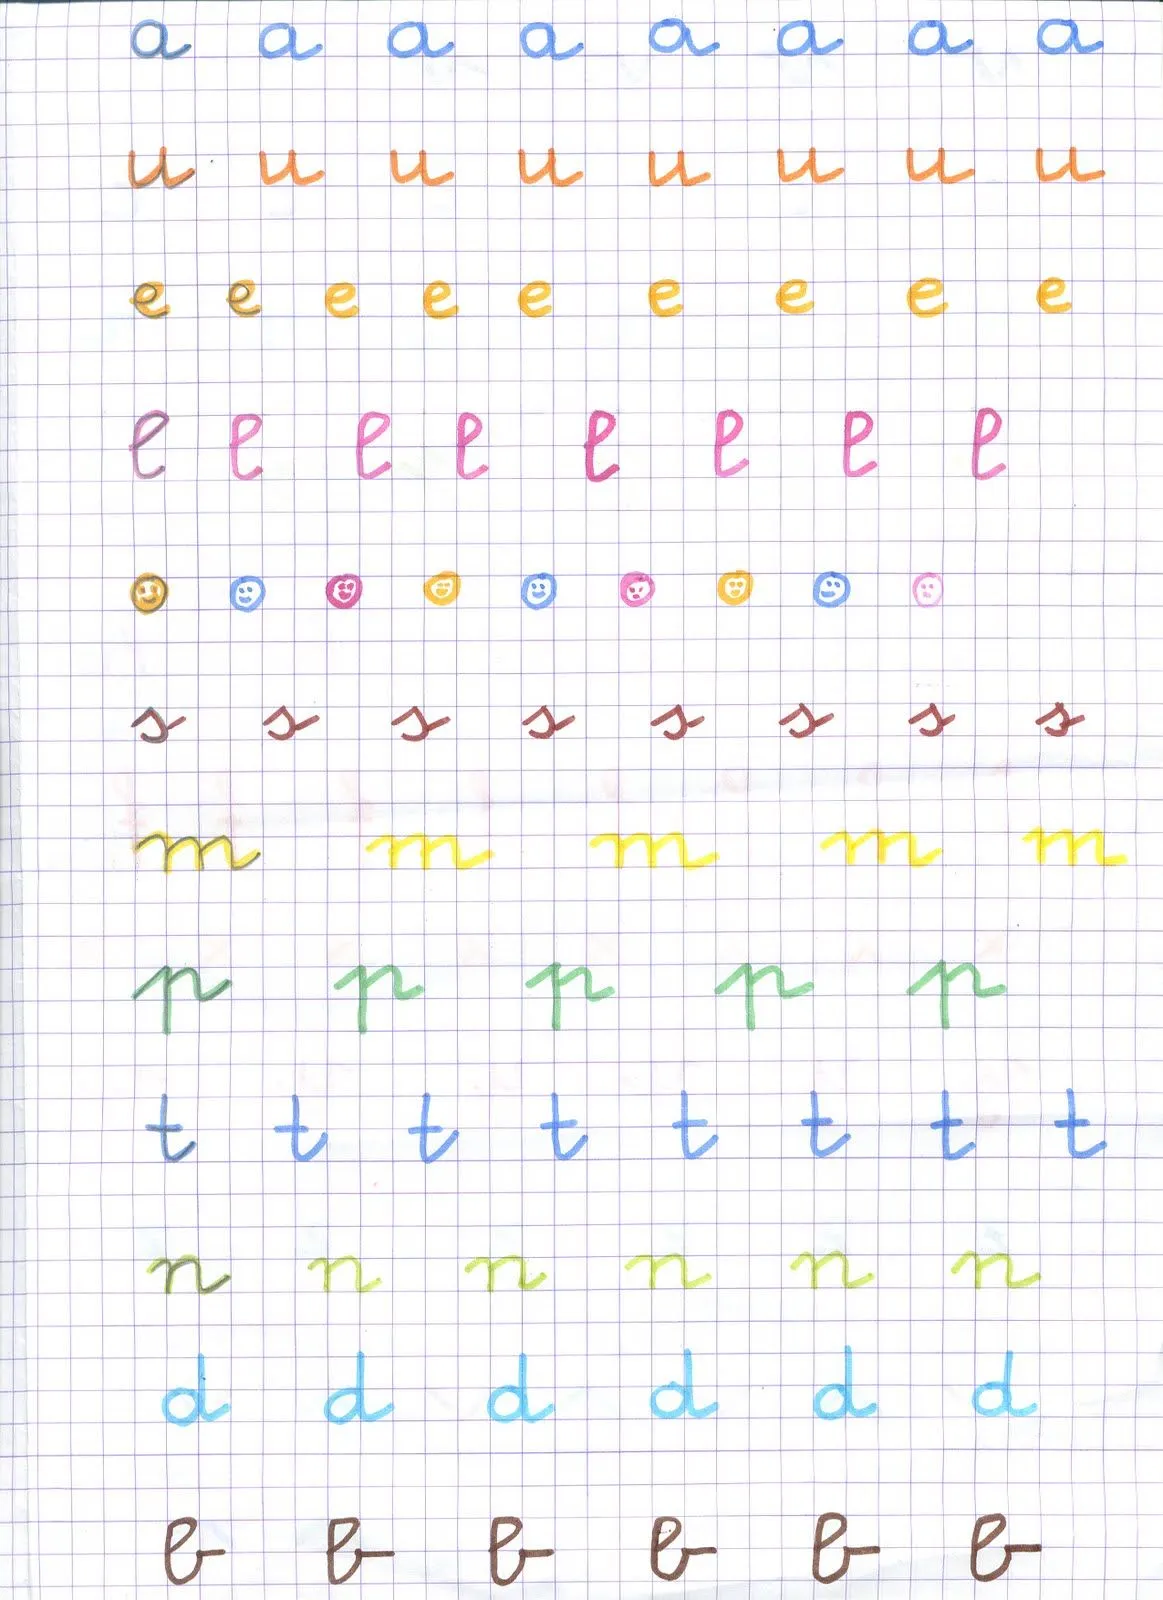 a a a a a a a a
u u u u u u u u
e e e e e e e e e
l l l l l l l l
s s s s s s s s
m m m m m
p p p p p
t t t t t t t t
n n n n n n
d d d d d d
b b b b b b